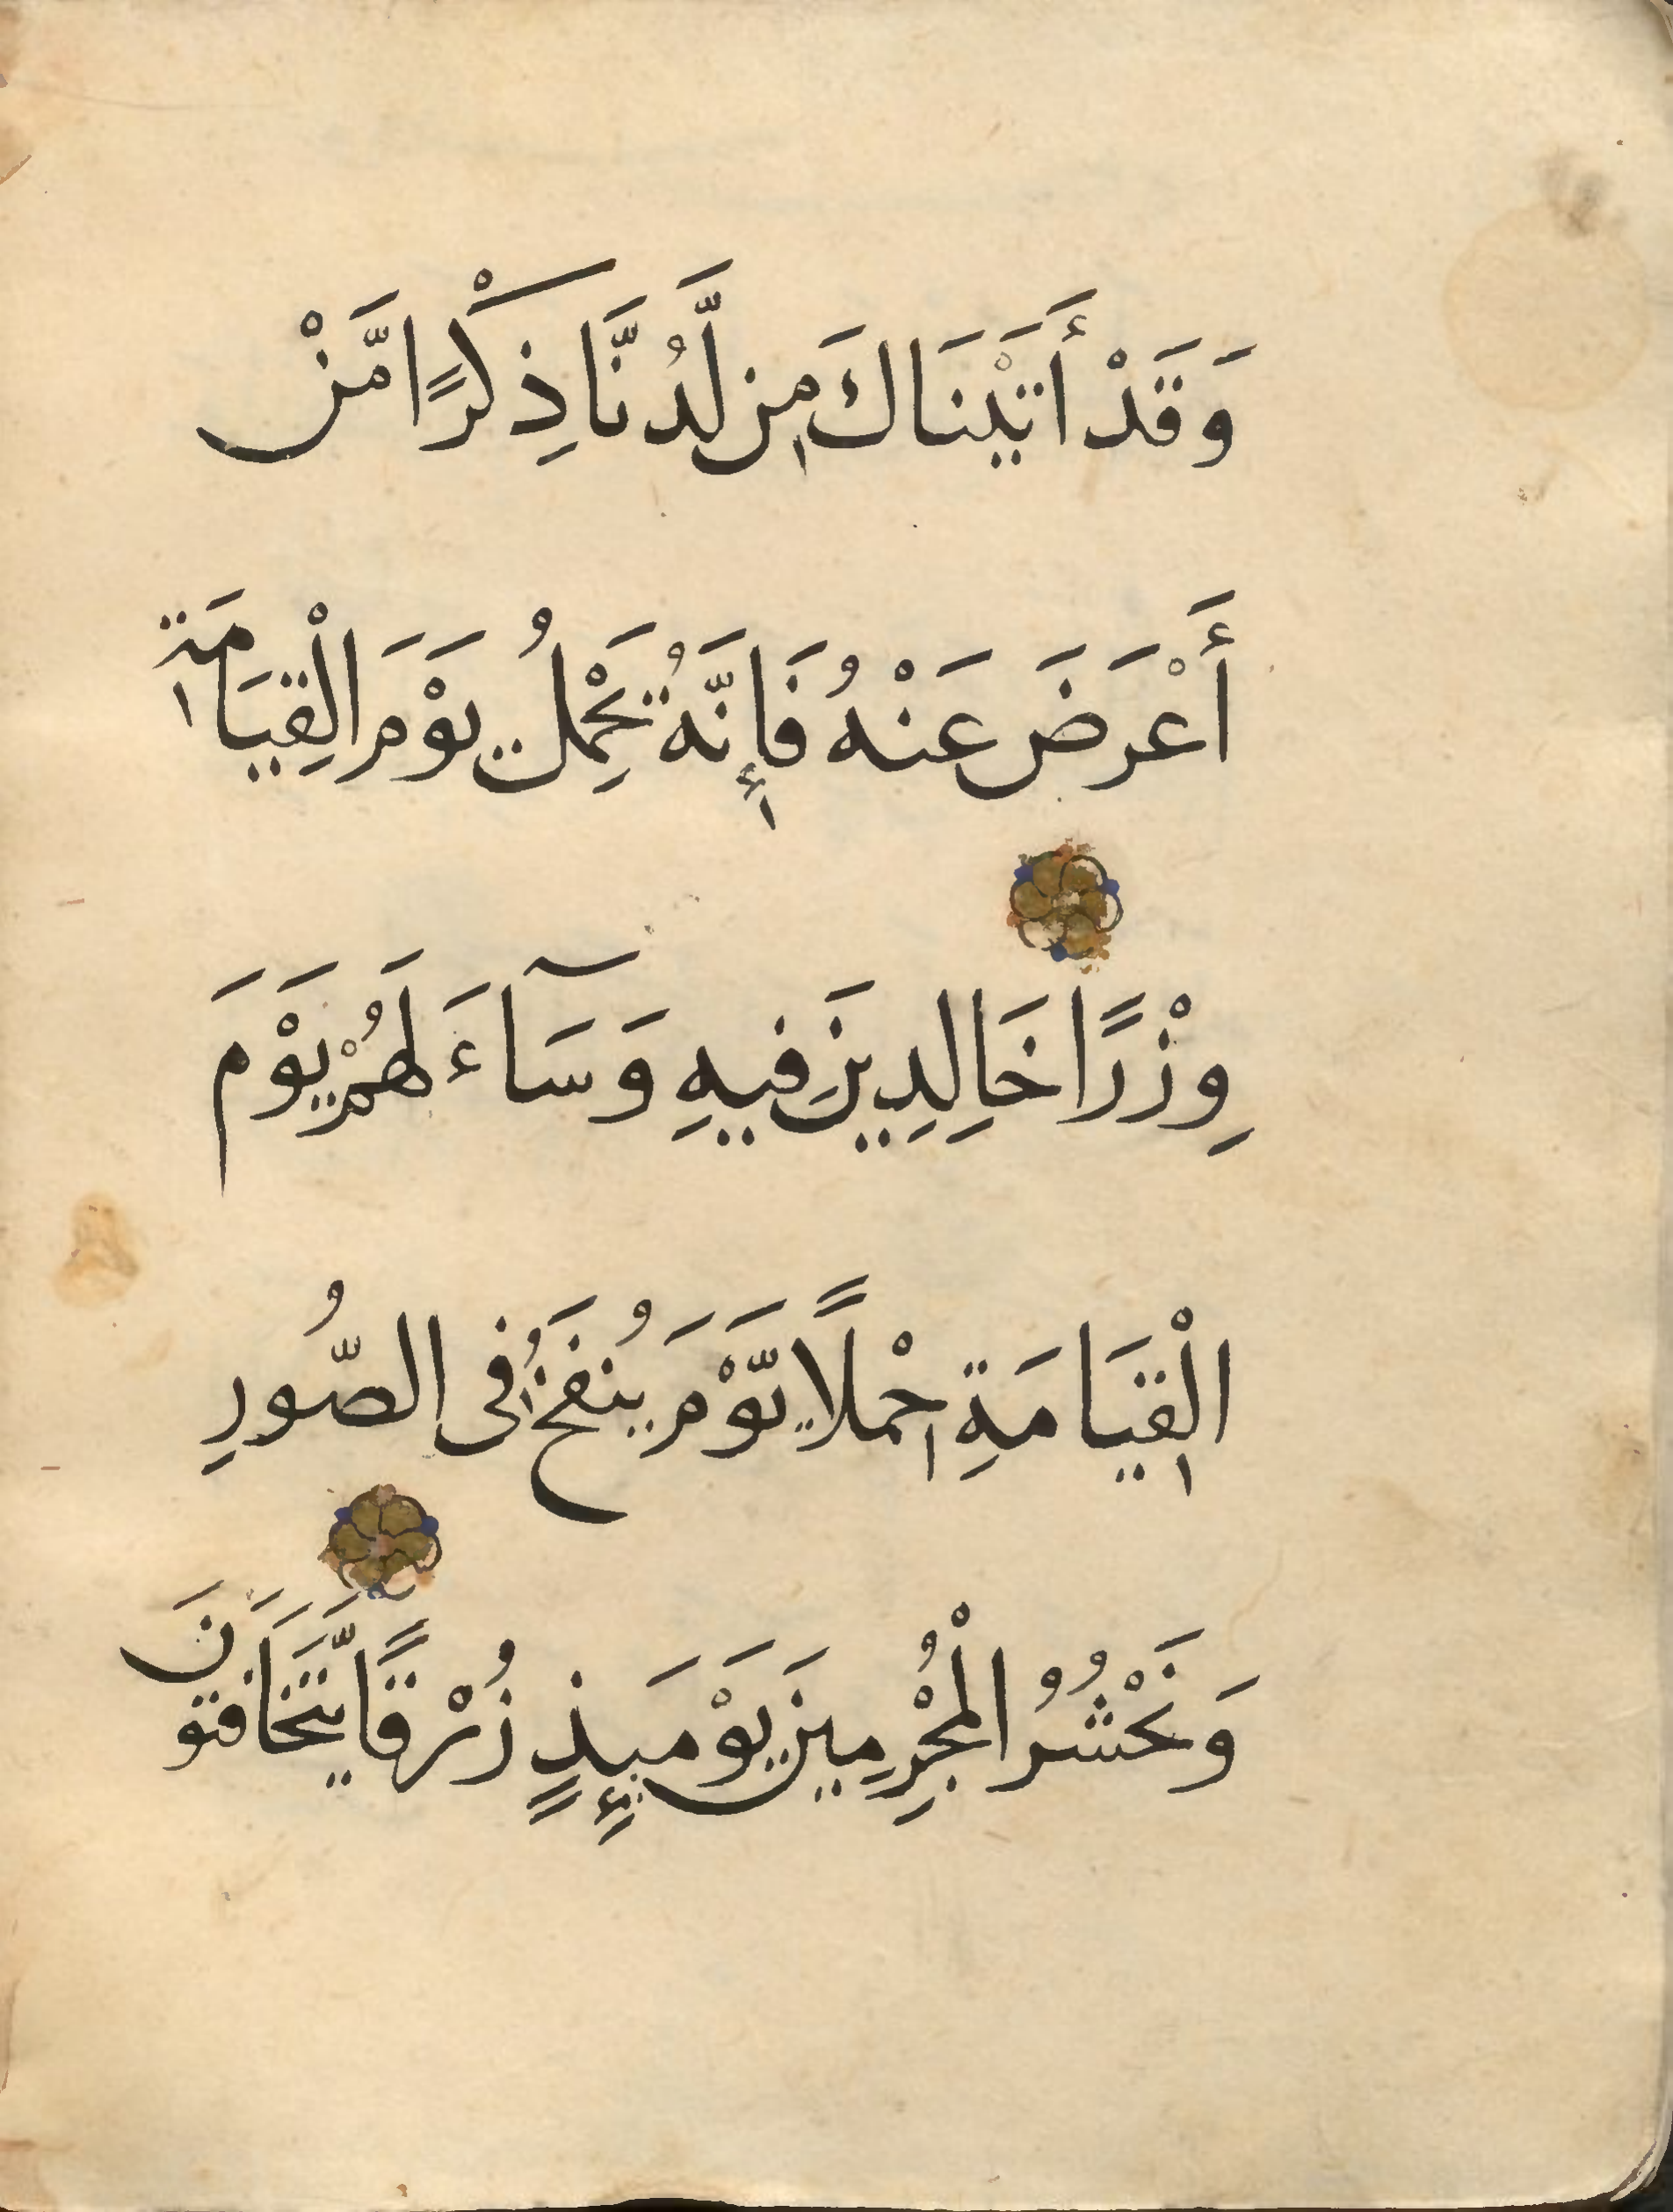 وَقَدْ أَتَيْنَاكَ مِن لَّدُنَّا ذِكْرًا مَّنْ
أَعْرَضَ عَنْهُ فَإِنَّهُ تَحْمِلُ يَوْمَ الْقِيَامَةِ
وِزْرًا خَالِدِينَ فِيهِ وَسَآءَ لَهُمْ يَوْمَ
الْقِيَامَةِ حِمْلًا يَّوْمَ يُنفَخُ فِى الصُّورِ
وَنَحْشُرُ الْمُجْرِمِينَ يَوْمَئِذٍ زُرْقًا يَّتَخَافَتُونَ